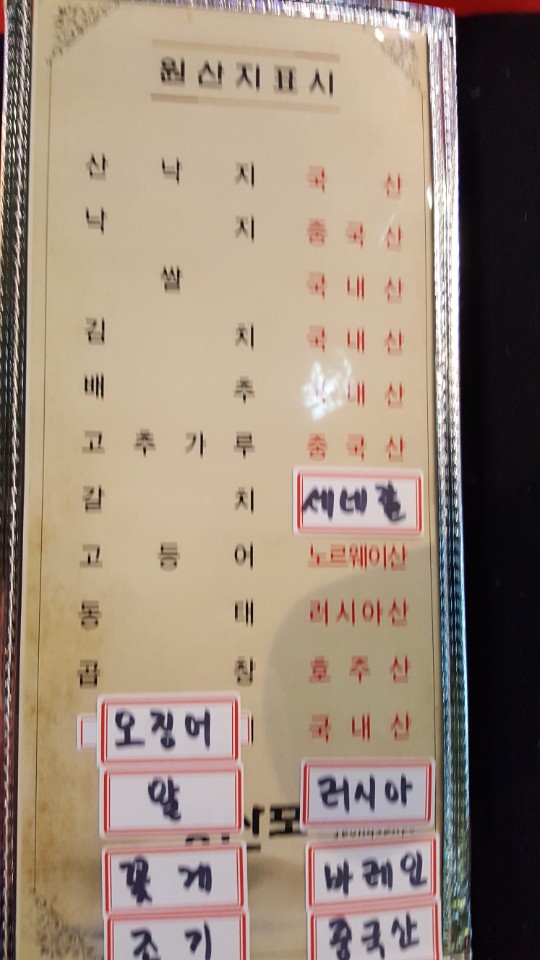 원산지표시
산 낙 지 국 산
낙 지 중 국 산
쌀 국 내 산
김 치 국 내 산
배 추 내 산
고 추 가 루 중 국 산
갈 치 세네갈
고 등 어 노르웨이산
동 태 러시아산
곱 창 호 주 산
오징어 국 내 산
알 러시아
꽃 게 바레인
조 기 중국산